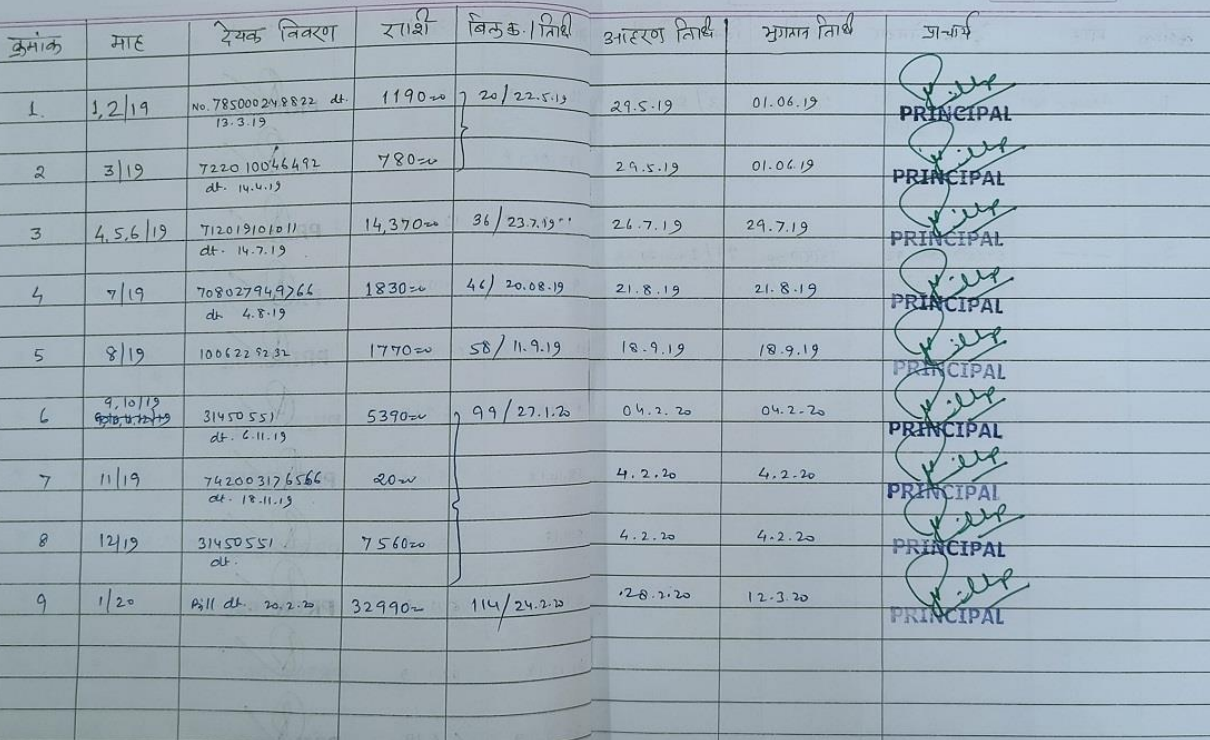 क्रमांक माह देयक विवरण राशी बिल क्र./तिथी आहरण तिथि भुगतान तिथि प्राचार्य
1. 1,2/19 No. 785000248822 dt. 1190=00 20/22.5.19 29.5.19 01.06.19 PRINCIPAL
13.3.19
2 3/19 722010046492 780=00 29.5.19 01.06.19 PRINCIPAL
dt. 14.4.19
3 4,5,6/19 712019101011 14,370=00 36/23.7.19 26.7.19 29.7.19 PRINCIPAL
dt. 14.7.19
4 7/19 708027949766 1830=00 46/20.08.19 21.8.19 21.8.19 PRINCIPAL
dt 4.8.19
5 8/19 1006229232 1770=00 58/11.9.19 18.9.19 18.9.19 PRINCIPAL
9,10/19
6 31450551 5390=00 99/27.1.20 04.2.20 04.2.20 PRINCIPAL
dt. 6.11.19
7 11/19 742003176566 20=00 4.2.20 4.2.20 PRINCIPAL
dt. 18.11.19
8 12/19 31450551 7560=00 4.2.20 4.2.20 PRINCIPAL
dt.
9 1/20 Bill dt. 20.2.20 32990=00 114/24.2.20 28.2.20 12.3.20 PRINCIPAL